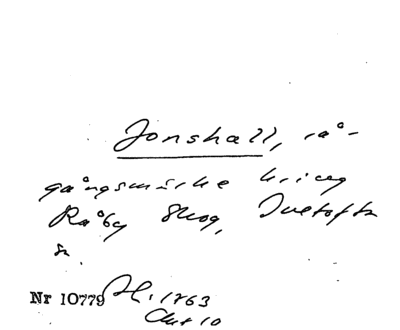 Jonshall, rå-
gångsmärke kring
Råby Skog, Ivetofta
sn.
Nr 10779 1763
Akt 10